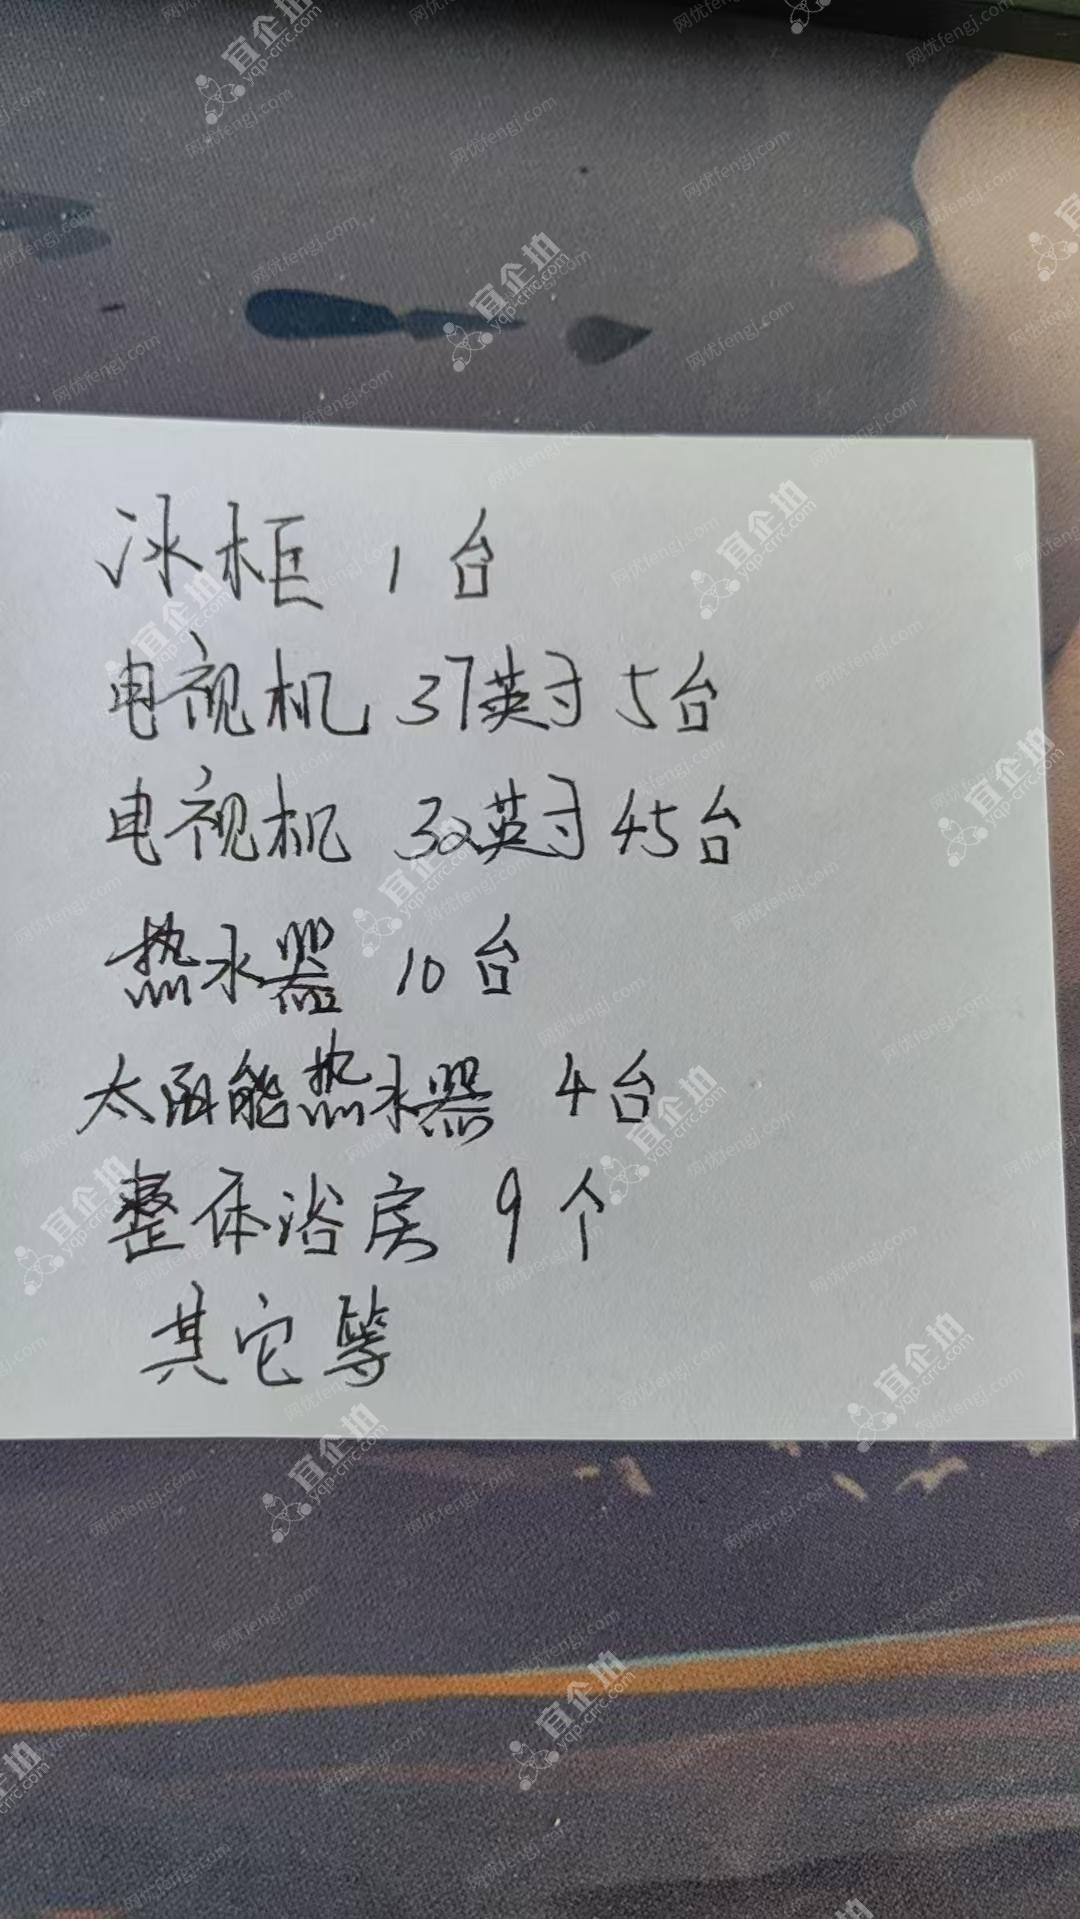 冰柜 1台
电视机 37英寸 5台
电视机 32英寸 45台
热水器 10台
太阳能热水器 4台
整体浴房 9个
其它等
宜企拍
yqp-crrc.com
网优fengj.com